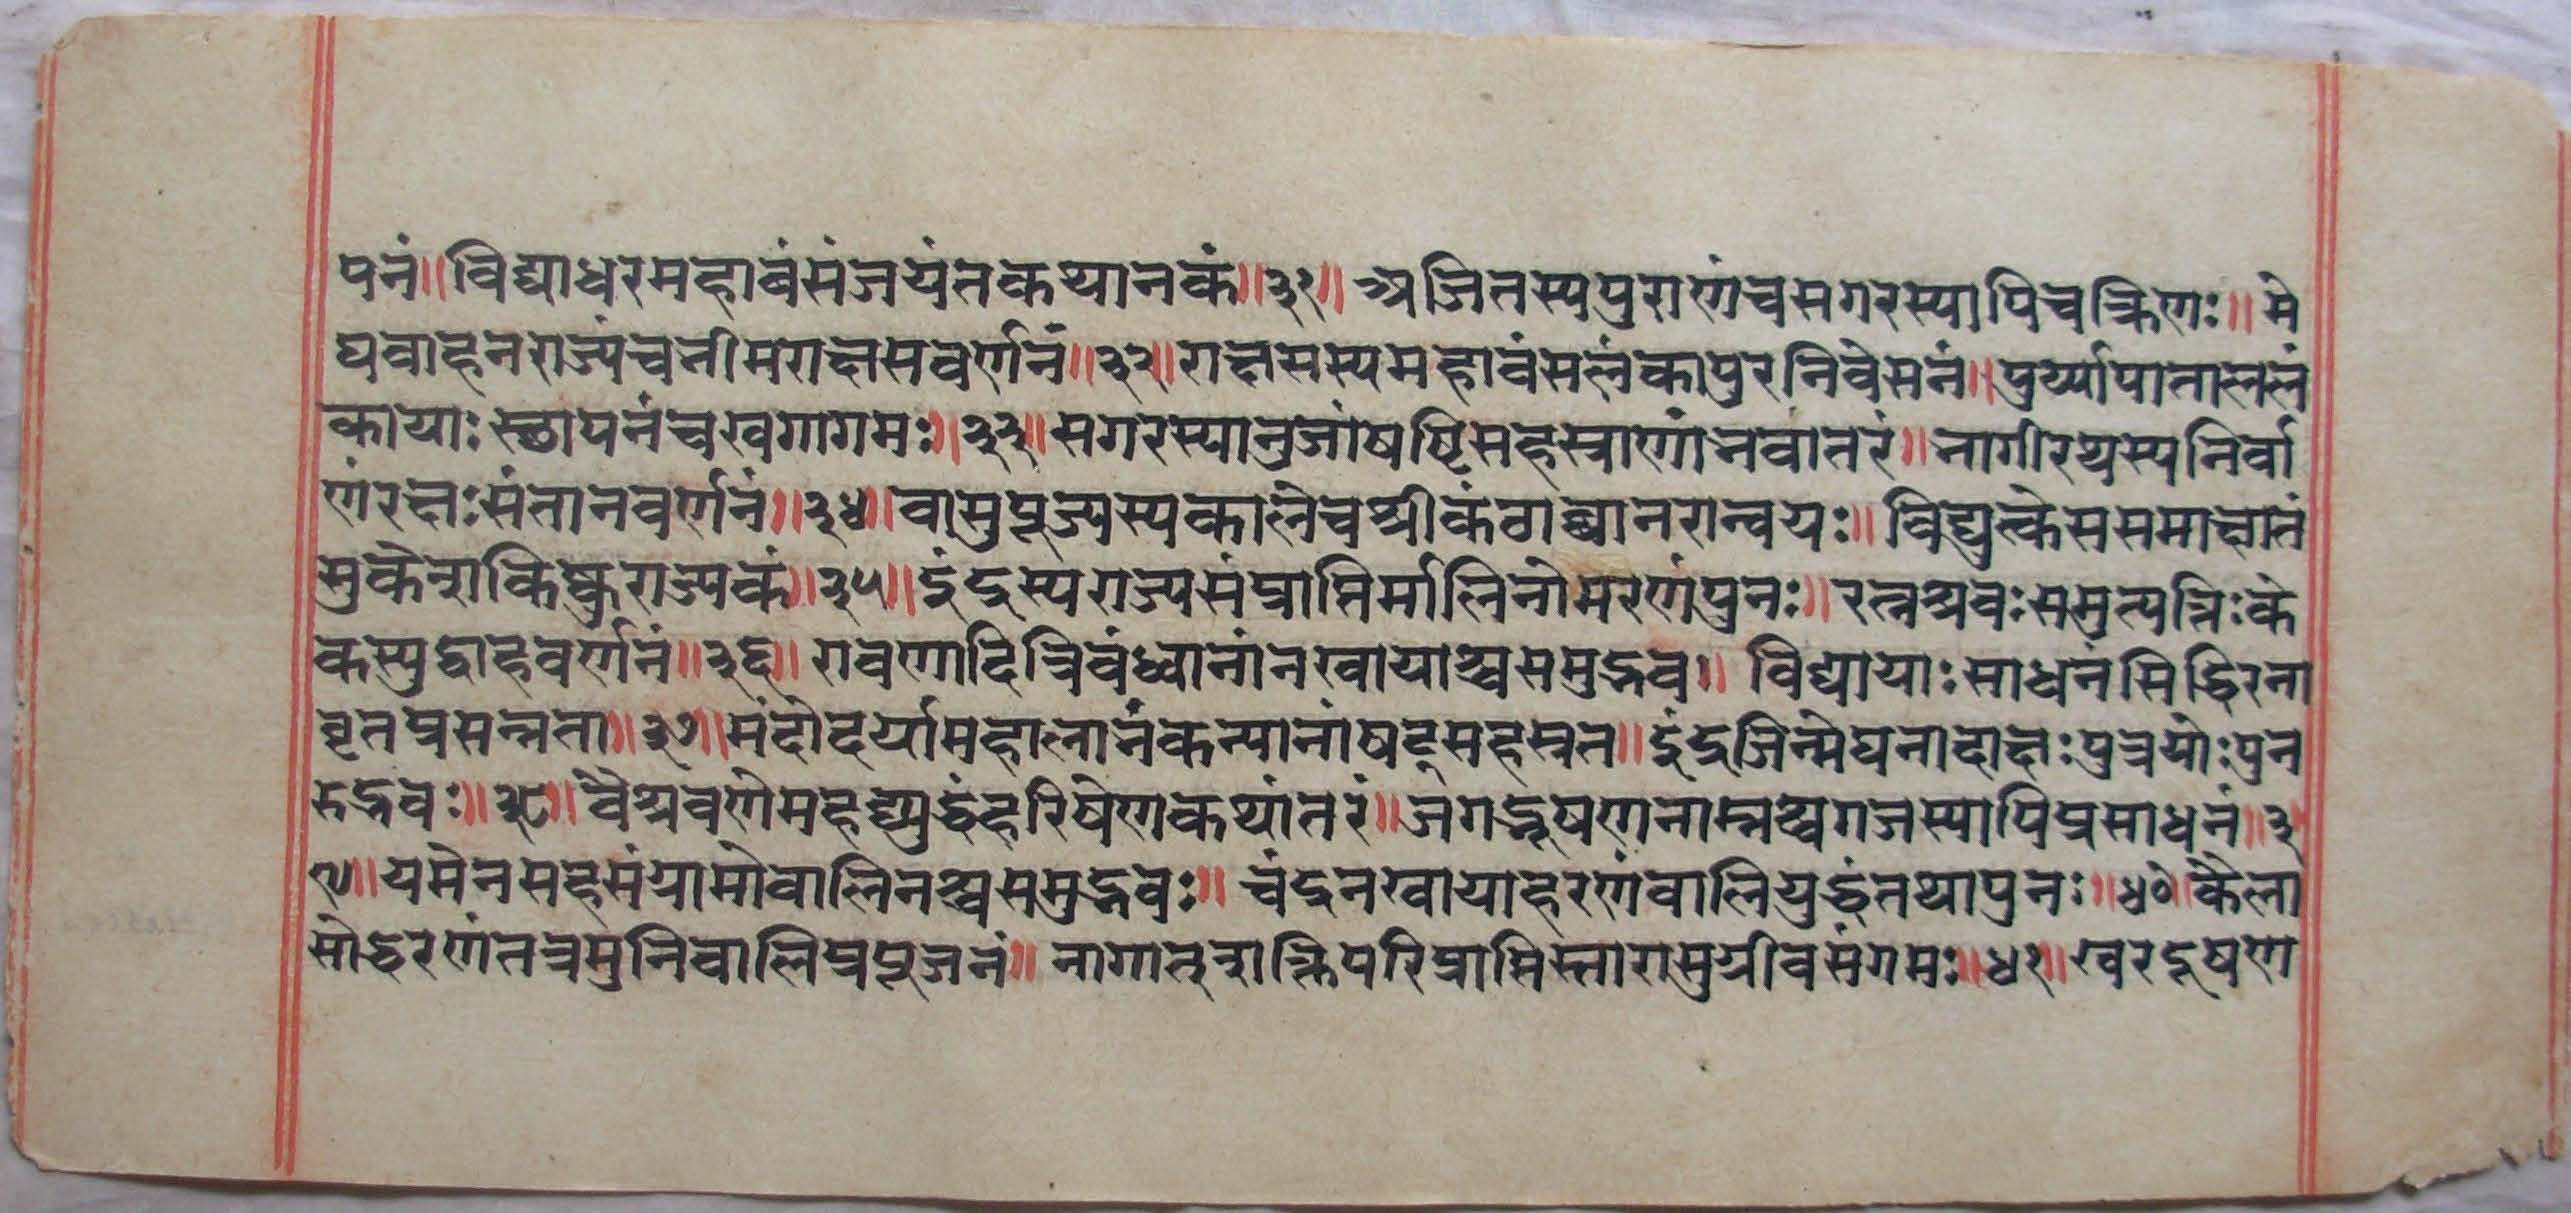 पनं॥विद्याधरमहाबंसंजयंतकथानकं॥३१॥ अजितस्यपुराणंचसगरस्यापिचक्रिणः॥ मे
घवाहनराज्यंचभीमराक्षसवर्णनं॥३२॥राक्षसस्यमहावंसलंकापुरनिवेसनं॥पुर्य्यापाताललं
कायाः स्छापनंचखगागमः॥३३॥सगरस्यानुजांषष्टिसहस्राणांभवांतरं॥ भागीरथस्यनिर्वा
णंरक्षःसंतानवर्णनं॥३४॥वासुपूज्यस्यकालेचश्रीकंठाद्वानरान्वयः॥ विद्युत्केससमाक्षातं
सुकेशकिष्कुराज्यकं॥३५॥इंद्रस्यराज्यसंप्राप्तिर्मालिनोमरणंपुनः॥ रत्नश्रवःसमुत्पत्तिःके
कस्युद्वाहवर्णनं॥३६॥ रावणादित्रिबंध्वानांनखायाश्चसमुद्भव॥ विद्यायाः साधनंसिद्धिरना
वृतप्रसन्नता॥३७॥मंदोदर्यामहालाभंकन्यानांषट्सहस्रत॥इंद्रजिन्मेघनादाक्षःपुत्रयोःपुन
रुद्भवः॥३८॥वैश्रवणेमहद्युद्धंहरिषेणकथांतरं॥जगद्भूषणनाम्नश्चगजस्यापिप्रसाधनं॥३
९॥यमेनसहसंग्रामोवालिनश्चसमुद्भवः॥ चंद्रनखायाहरणंवालियुद्धंतथापुनः॥४०॥कैला
सोद्धरणंतत्रमुनिवालिप्रपूजनं॥ नागात्शक्तिपरिप्राप्तिस्तारासुग्रीवसंगमः॥४१॥खरदूषण